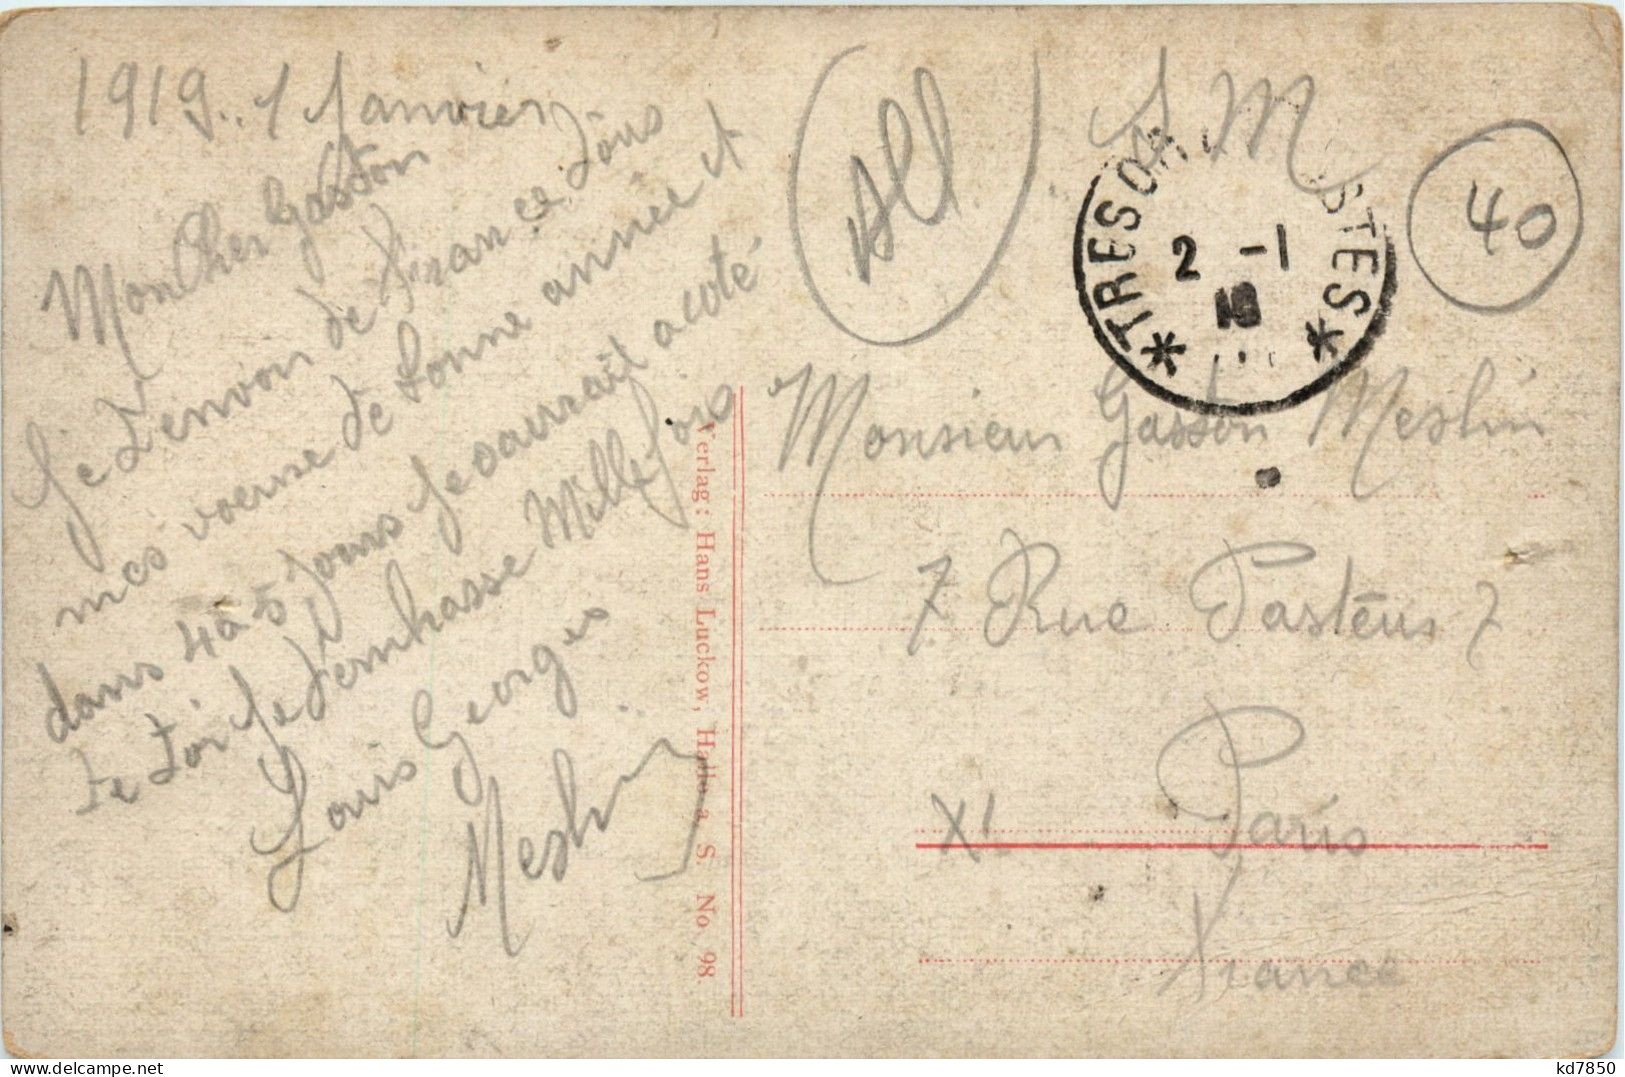 1919..1 Janvier
Mon Cher Gaston
Je t'envoi de France tous
mes voeuxe de bonne année et
dans 4 à 5 jours Je saurrait a coté
de toi Je t'embrasse Mille fois
Louis Georges
Meslin
All
S M
40
* TRESOR POSTES *
2 -1
Monsieur Gaston Meslin
7 Rue Pasteur 7
XI Paris
France
Verlag: Hans Luckow, Halle a. S. No. 98.
delcampe.net
kd7850